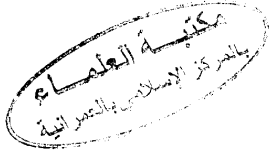 مكتبة العلماء
بالمركز الإسلامي بالعمرانية